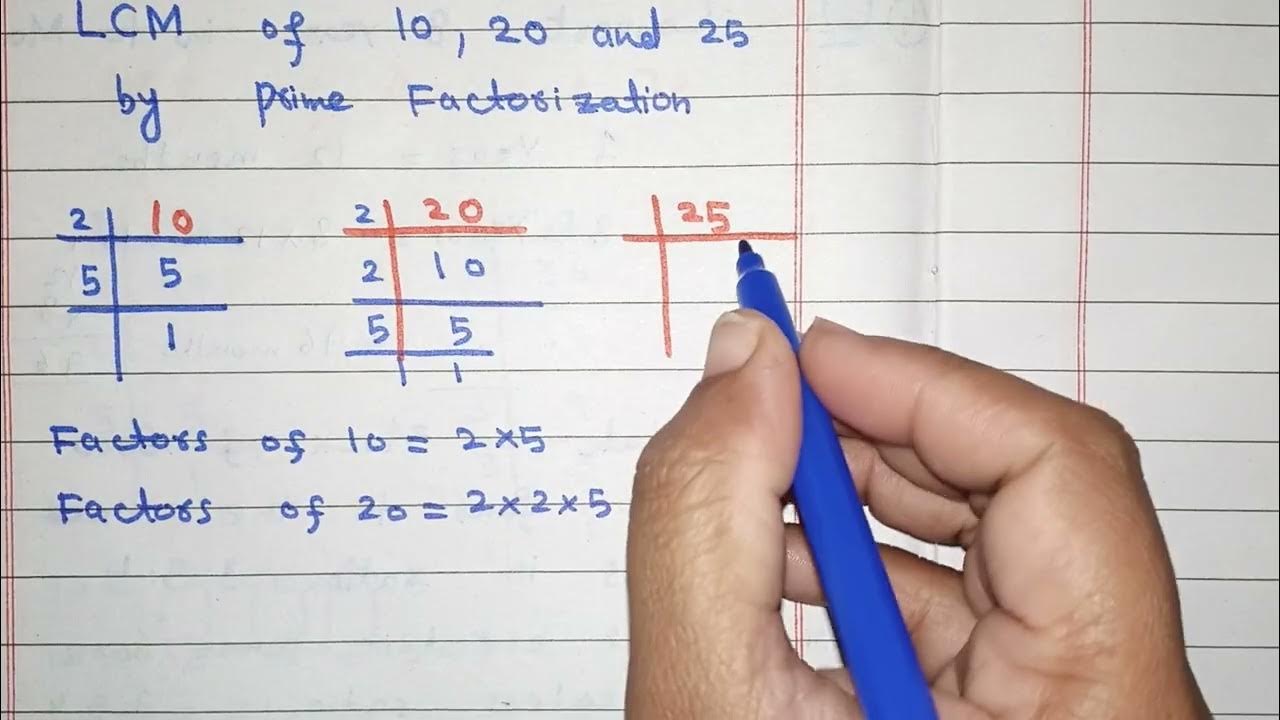 LCM of 10, 20 and 25
by Prime Factorization
2 10
5 5
1
2 20
2 10
5 5
1
25
Factors of 10 = 2×5
Factors of 20 = 2×2×5